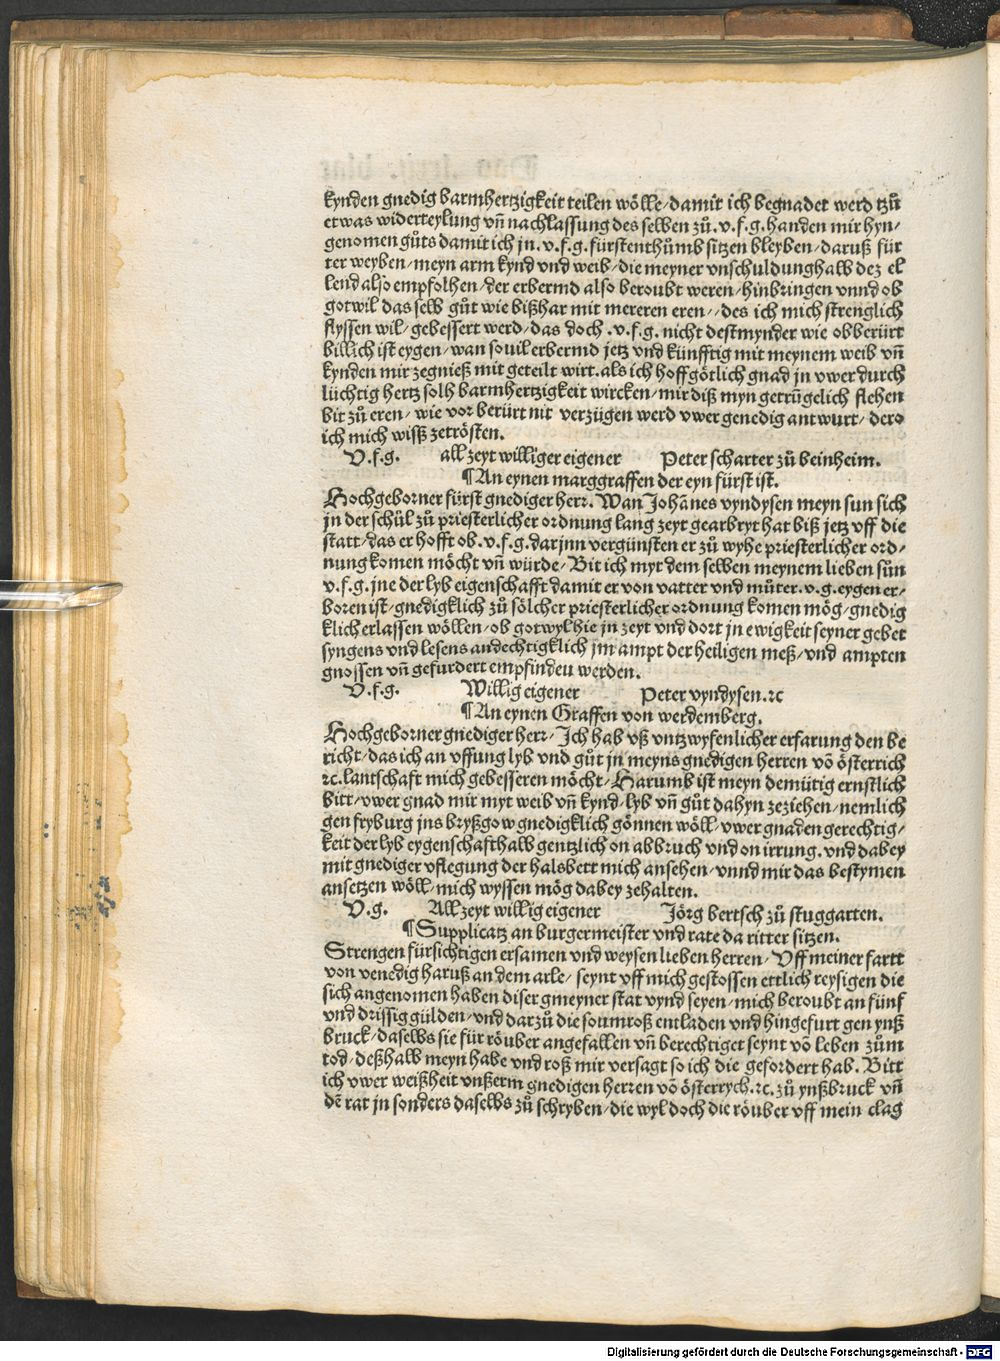 kynden gnedig barmhertzigkeit teilen wölle / damit ich begnadet werd tzů
etwas widerteylung vñ nachlassung des selben zů .v.f.g. handen mir hyn⸗
genomen gůts damit ich jn .v.f.g. fürstenthůmb sitzen bleyben / daruß für
ter weyben / meyn arm kynd vnd weib / die meyner vnschuldunghalb dez el
lend also empfolhen / der erbermd also beroubt weren / hinbringen vnnd ob
got wil das selb gůt wie bißhar mit mereren eren / / des ich mich strenglich
flyssen wil / gebessert werd / das doch .v.f.g. nicht destmynder wie ob berürt
billich ist eygen / wan so uil erbermd jetz vnd künfftig mit meynem weib vñ
kynden mir zegnieß mit geteilt wirt. als ich hoff götlich gnad jn vwer durch
lüchtig hertz solh barmhertzigkeit wircken / mir diß myn getrůgelich flehen
bit zů eren / wie vor berürt nit verzügen werd vwer genedig antwurt / dero
ich mich wisß zetrösten.
V.f.g. all zeyt williger eigener Peter scharter zů beinheim.
¶ An eynen marggraffen der eyn fürst ist.
Hochgeborner fürst gnediger herr. Wan Johānes vyndysen meyn sun sich
jn der schůl zů priesterlicher ordnung lang zeyt gearbryt hat biß jetz vff die
statt / das er hofft ob .v.f.g. dar jnn vergünsten er zů wyhe priesterlicher ord⸗
nung komen möcht vñ würde / Bit ich myt dem selben meynem lieben sůn
v.f.g. jne der lyb eigenschafft damit er von vatter vnd můter .v.g. eygen er⸗
boren ist / gnedigklich zů sölcher priesterlicher ordnung komen mög / gnedig
klich erlassen wöllen / ob got wyl hie jn zeyt vnd dort jn ewigkeit seyner gebet
syngens vnd lesens andechtigklich jm ampt der heiligen meß / vnd ampten
gnossen vñ gefurdert empfindeu werden.
V.f.g. Willig eigener Peter vyndysen. ⁊c
¶ An eynen Graffen von werdemberg.
Hochgeborner gnediger herr / Ich hab vß vntzwyfenlicher erfarung den be
richt / das ich an vffung lyb vnd gůt jn meyns gnedigen herren vō österrich
⁊c. lantschaft mich gebesseren möcht / Harumb ist meyn demütig ernstlich
bitt / vwer gnad mir myt weib vñ kynd / lyb vñ gůt dahyn zeziehen / nemlich
gen fryburg jns bryßgow gnedigklich gönnen wöll / vwer gnaden gerechtig⸗
keit der lyb eygenschafthalb gentzlich on abbruch vnd on irrung. vnd dabey
mit gnediger vflegung der halsbett mich ansehen / vnnd mir das bestymen
ansetzen wöll / mich wyssen mög dabey zehalten.
V.g. All zeyt willig eigener Jörg bertsch zů stuggarten.
¶ Supplicatz an burgermeister vnd rate da ritter sitzen.
Strengen fürsichtigen ersamen vnd weysen lieben herren / Vff meiner fartt
von venedig haruß an dem arle / seynt vff mich gestossen ettlich reysigen die
sich angenomen haben diser gmeyner stat vynd seyen / mich beroubt an fünf
vnd drissig gülden / vnd darzů die soumroß entladen vnd hingefurt gen ynß
bruck / daselbs sie für röuber angefallen vñ berechtiget seynt vō leben zům
tod / deßhalb meyn habe vnd roß mir versagt so ich die gefordert hab. Bitt
ich vwer weißheit vnßerm gnedigen herren vō österrych. ⁊c. zů ynßbruck vñ
dē rat jn sonders daselbs zů schryben / die wyl doch die röuber vff mein clag
Digitalisierung gefördert durch die Deutsche Forschungsgemeinschaft - DFG